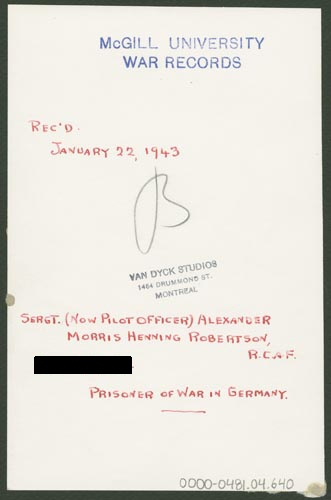 McGILL UNIVERSITY
WAR RECORDS
REC'D.
JANUARY 22, 1943
B
VAN DYCK STUDIOS
1464 DRUMMOND ST.
MONTREAL
SERGT. (NOW PILOT OFFICER) ALEXANDER
MORRIS HENNING ROBERTSON,
R.C.A.F.
PRISONER OF WAR IN GERMANY.
0000-0481.04.640